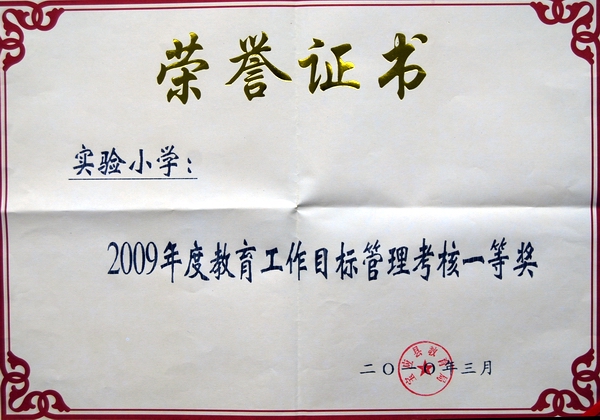 荣誉证书
实验小学:
2009年度教育工作目标管理考核一等奖
二〇一〇年三月